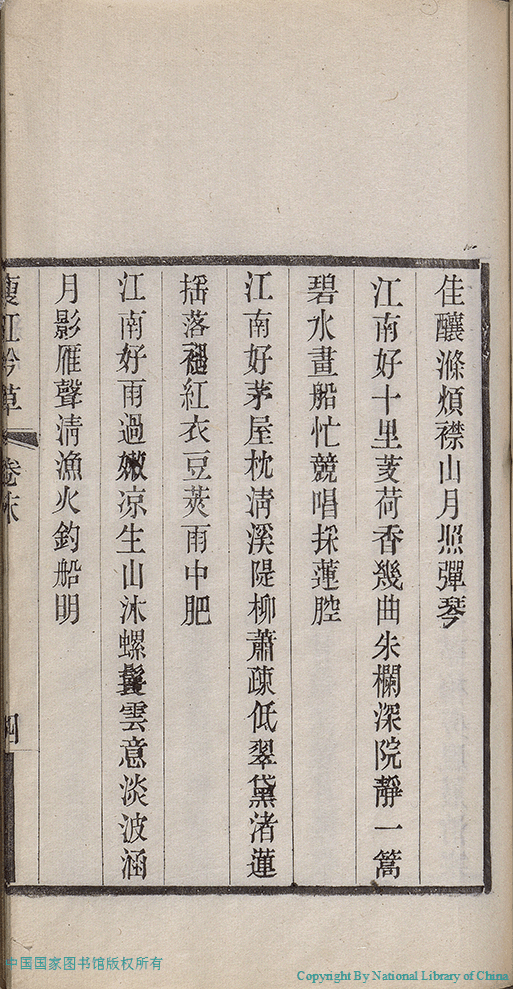 佳釀滌煩襟山月照彈琴
江南好十里菱荷香幾曲朱欄深院靜一篙
碧水畫船忙競唱採蓮腔
江南好茅屋枕清溪隄柳蕭疎低翠黛渚蓮
搖落褪紅衣豆莢雨中肥
江南好雨過嫩凉生山沐螺鬟雲意淡波涵
月影雁聲清漁火釣船明
瘦紅吟草 卷末 四
中国国家图书馆版权所有
Copyright By National Library of China